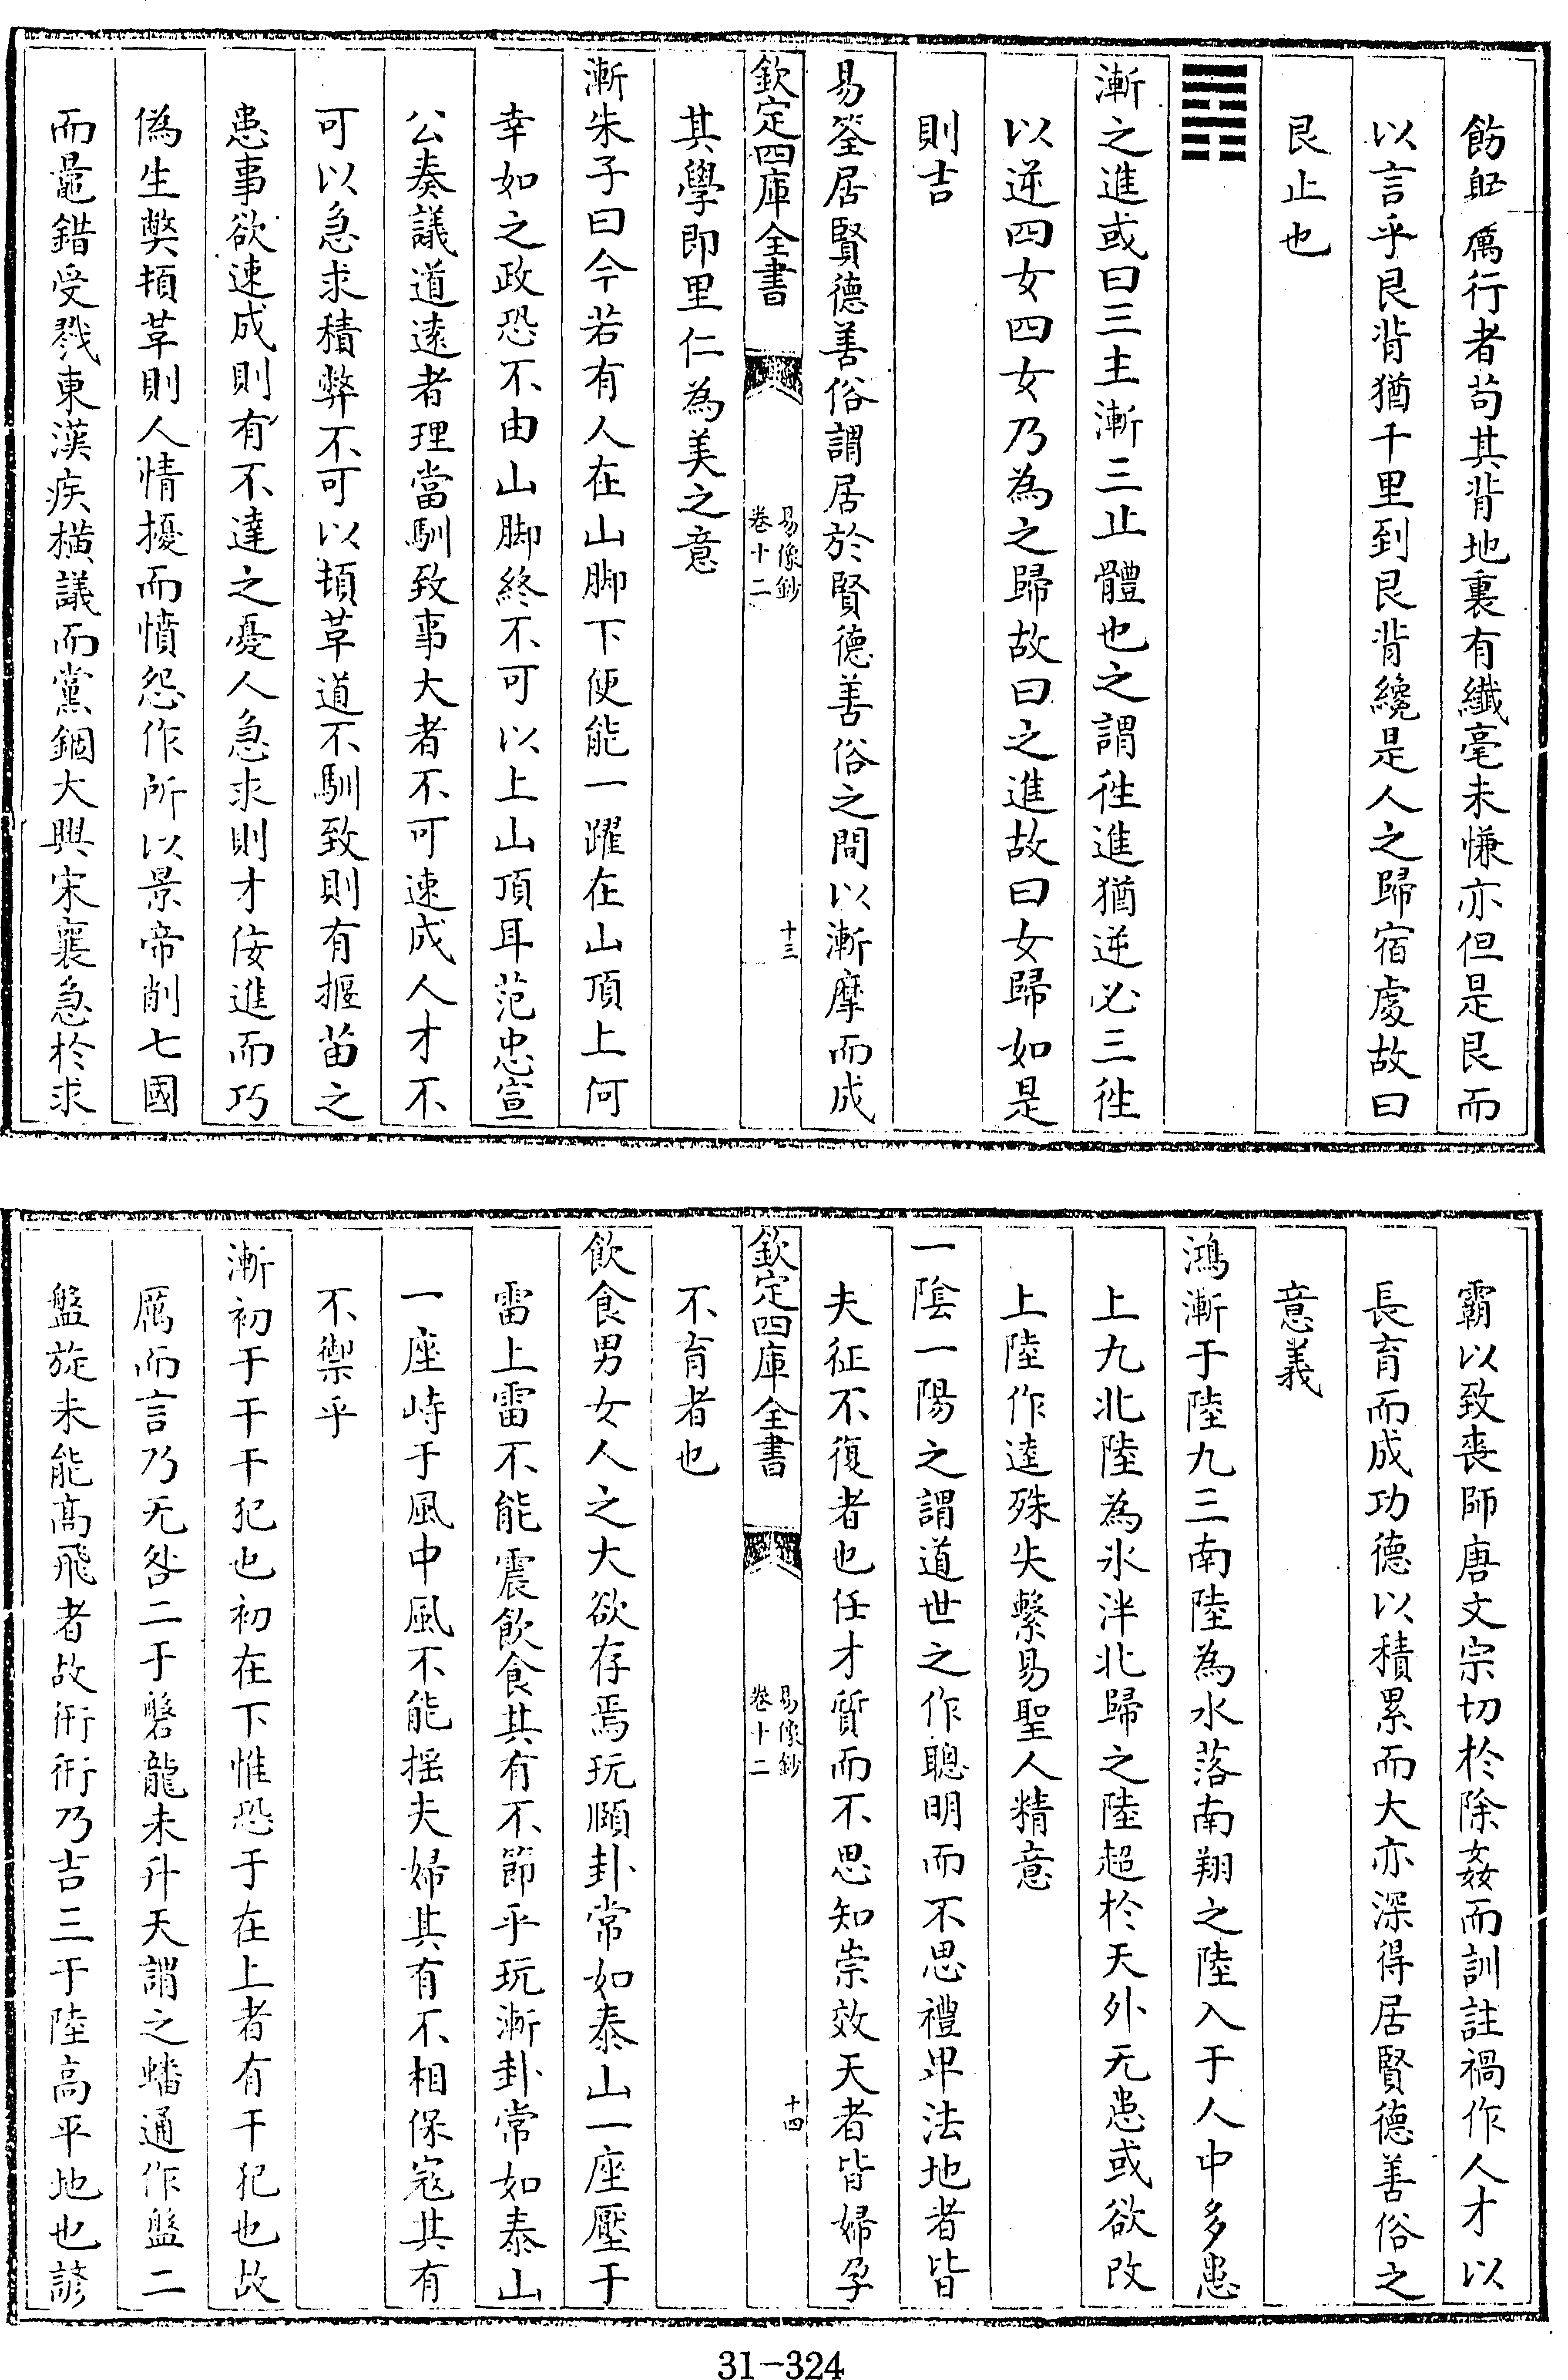 飭躬厲行者苟其背地裏有纖毫未慊亦但是艮而
以言乎艮背猶千里到艮背纔是人之歸宿處故曰
艮止也
漸之進或曰三主漸三止體也之謂徃進猶逆必三徃
以逆四女四女乃為之歸故曰之進故曰女歸如是
則吉
易筌居賢德善俗謂居於賢德善俗之間以漸摩而成
欽定四庫全書
易像鈔
卷十二
十三
其學即里仁為美之意
漸朱子曰今若有人在山脚下便能一躍在山頂上何
幸如之政恐不由山脚終不可以上山頂耳范忠宣
公奏議道遠者理當馴致事大者不可速成人才不
可以急求積弊不可以頓革道不馴致則有揠苗之
患事欲速成則有不達之憂人急求則才佞進而巧
偽生弊頓革則人情擾而憤怨作所以景帝削七國
而鼂錯受戮東漢疾橫議而黨錮大興宋襄急於求
霸以致喪師唐文宗切於除姦而訓註禍作人才以
長育而成功德以積累而大亦深得居賢德善俗之
意義
鴻漸于陸九三南陸為水落南翔之陸入于人中多患
上九北陸為氷泮北歸之陸超於天外无患或欲改
上陸作逵殊失繫易聖人精意
一陰一陽之謂道世之作聰明而不思禮卑法地者皆
夫征不復者也任才質而不思知崇效天者皆婦孕
欽定四庫全書
易像鈔
卷十二
十四
不育者也
飲食男女人之大欲存焉玩頤卦常如泰山一座壓于
雷上雷不能震飲食其有不節乎玩漸卦常如泰山
一座峙于風中風不能揺夫婦其有不相保寇其有
不禦乎
漸初于干干干犯也初在下惟恐于在上者有干犯也故
厲而言乃无咎二于磐龍未升天謂之蟠通作盤二
盤旋未能高飛者故衎衎乃吉三于陸高平地也諺
31-324